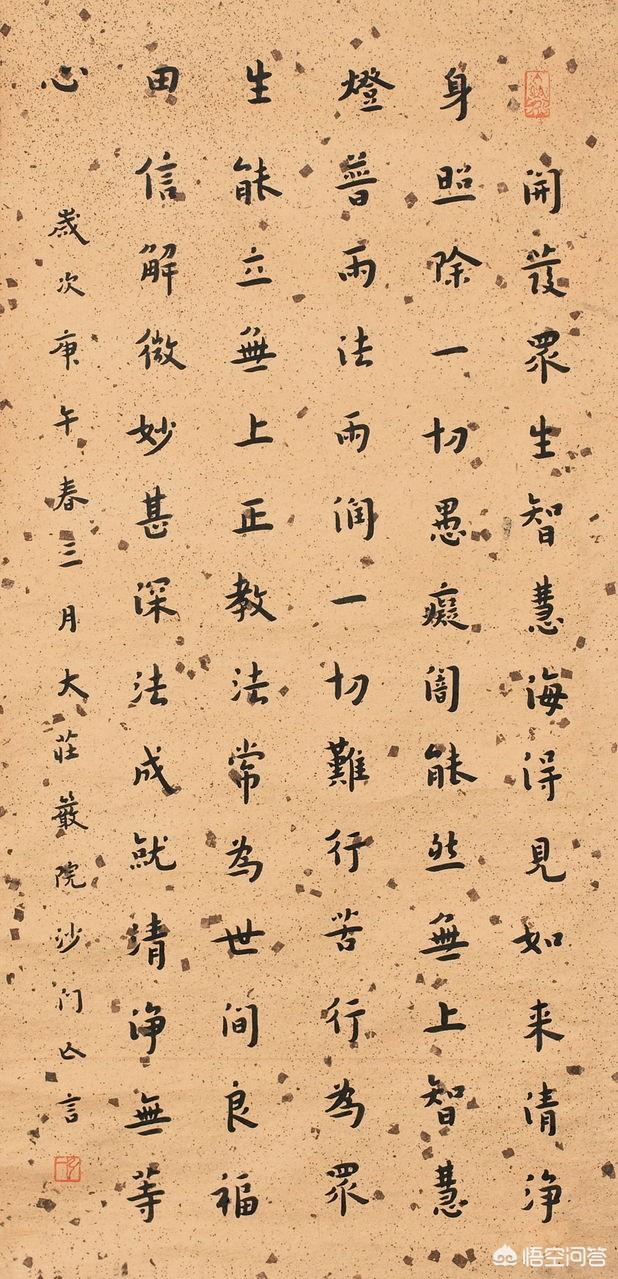 開發眾生智慧海得見如来清淨
身照除一切愚癡闇能然無上智慧
燈普雨法雨润一切難行苦行為眾
生能立無上正教法常為世间良福
田信解微妙甚深法成就清淨無等
心
歲次庚午春三月大莊嚴院沙门亡言
悟空问答